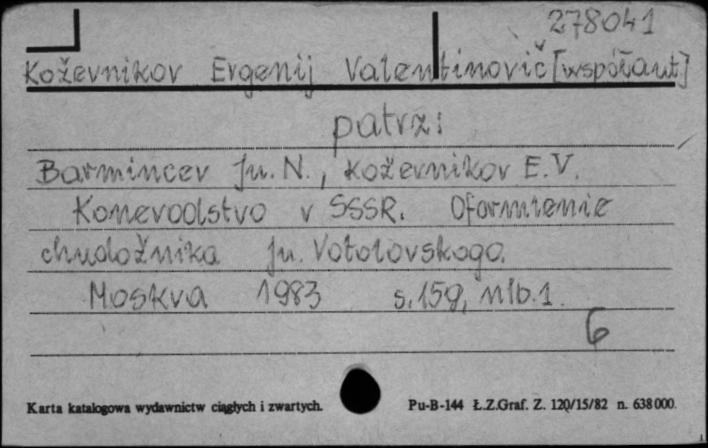 278041
Koževnikov Evgenij Valentinovič [współaut]
patrz:
Barmincev Ju. N., Koževnikov E.V.
Konevodstvo v SSSR. Oformienie
chudožnika Ju. Votolovskogo.
Moskva 1983 s. 159, nlb. 1.
6
Karta katalogowa wydawnictw ciągłych i zwartych. Pu-B-144 Ł.Z.Graf. Z. 120/15/82 n. 638000.